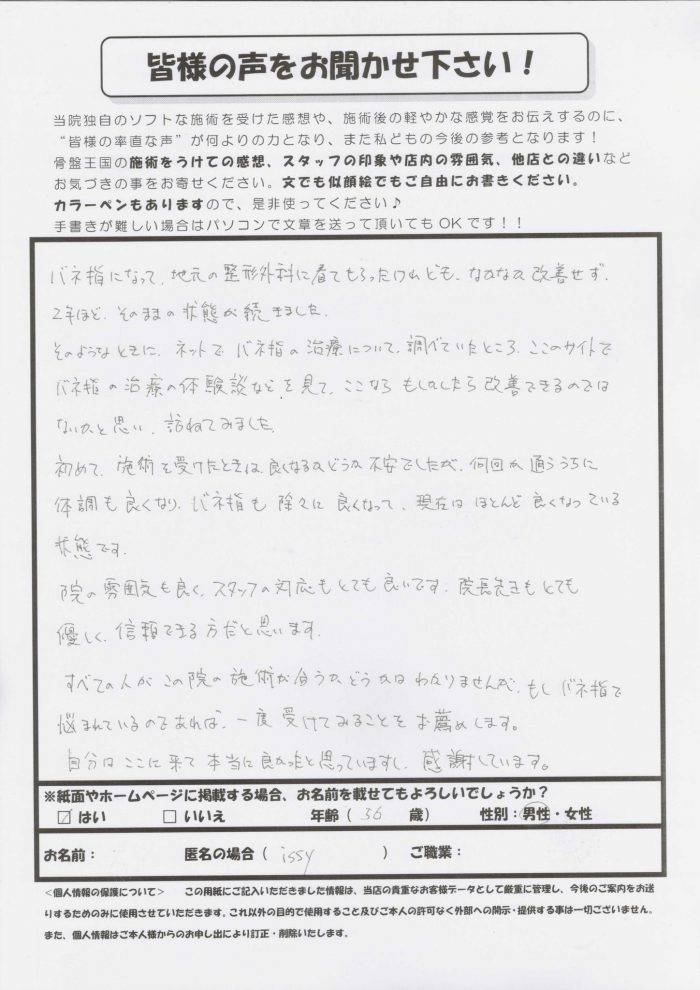 皆様の声をお聞かせ下さい！
当院独自のソフトな施術を受けた感想や、施術後の軽やかな感覚をお伝えするのに、
“皆様の率直な声”が何よりの力となり、また私どもの今後の参考となります！
骨盤王国の施術をうけての感想、スタッフの印象や店内の雰囲気、他店との違いなど
お気づきの事をお寄せください。文でも似顔絵でもご自由にお書きください。
カラーペンもありますので、是非使ってください♪
手書きが難しい場合はパソコンで文章を送って頂いてもOKです！！
バネ指になって、地元の整形外科に看てもらったけれども、なかなか改善せず、
2年ほど、そのままの状態が続きました。
そのようなときに、ネットで バネ指の治療について、調べていたところ、ここのサイトで
バネ指の治療の体験談などを見て、ここなら もしかしたら改善できるのでは
ないかと思い、訪ねてみました。
初めて、施術を受けたときは、良くなるかどうか不安でしたが、何回か通ううちに
体調も良くなり、バネ指も 除々に良くなって、現在は ほとんど良くなっている
状態です。
院の雰囲気も良く、スタッフの対応もとても良いです。院長先生もとても
優しく、信頼できる方だと思います。
すべての人が この院の施術が合うかどうかはわかりませんが、もし バネ指で
悩まれているのであれば、一度受けてみることをお薦めします。
自分はここに来て本当に良かったと思っていますし、感謝しています。
※紙面やホームページに掲載する場合、お名前を載せてもよろしいでしょうか？
☑ はい　□ いいえ　年齢（ 36 歳）　性別：男性・女性
お名前：　匿名の場合（ issy ）　ご職業：
＜個人情報の保護について＞　この用紙にご記入いただきました情報は、当店の貴重なお客様データとして厳重に管理し、今後のご案内をお送
りするためのみに使用させていただきます。これ以外の目的で使用すること及びご本人の許可なく外部への開示・提供する事は一切ございません。
また、個人情報はご本人様からのお申し出により訂正・削除いたします。